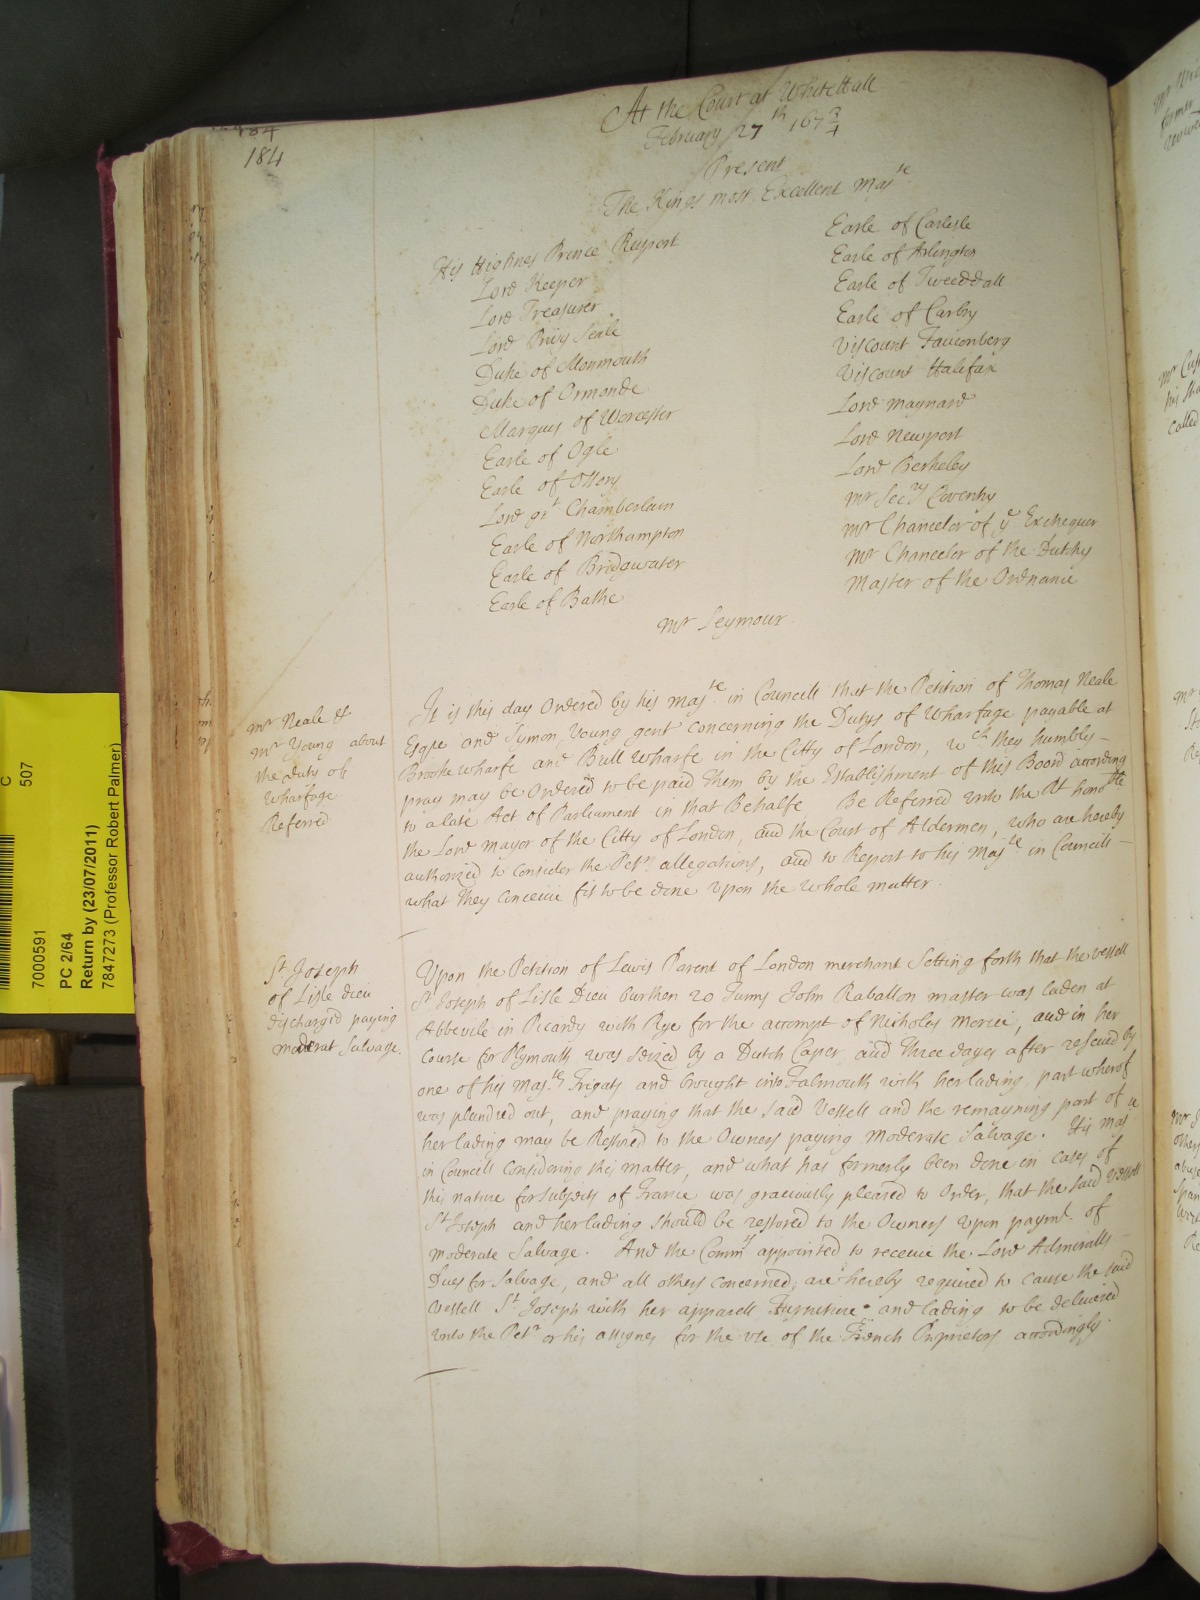 184
At the Court at WhiteHall
February 27th 1673/4
Present
The Kings most Excellent Majte
His Highnes Prince Rupert
Lord Keeper
Lord Treasurer
Lord Privy Seale
Duke of Monmouth
Duke of Ormonde
Marquis of Worcester
Earle of Ogle
Earle of Ossory
Lord grt Chamberlain
Earle of Northampton
Earle of Bridgwater
Earle of Bathe
Earle of Carlisle
Earle of Arlington
Earle of Tweeddall
Earle of Carbry
Viscount Fauconberg
Viscount Halifax
Lord Maynard
Lord Newport
Lord Berkeley
Mr Secry Coventry
Mr Chancelor of ye Exchequer
Mr Chancelor of the Dutchy
Master of the Ordnance
Mr Seymour
Mr Neale &
Mr Young about
the duty of
Wharfage
Referred
It is this day Ordered by his Majte in Councill that the Petition of Thomas Neale
Esqre and Symon Young gent concerning the Dutys of Wharfage payable at
Brooke wharfe and Bull Wharfe in the Citty of London, wch they humbly
pray may be Ordered to be paid them by the Establishment of this Board according
to a late Act of Parliament in that Behalfe Be Referred unto the Rt honoble
the Lord Mayor of the Citty of London, and the Court of Aldermen, who are hereby
authorized to consider the Petrs allegations, and to Report to his Majte in Councill
what they conceive fit to be done upon the whole matter.
St Joseph
of Lisle dieu
discharged paying
moderat Salvage.
Upon the Petition of Lewis Parent of London merchant Setting forth that the vessell
St Joseph of Lisle Dieu burthen 20 Tunns John Raballon master was laden at
Abbevile in Picardy with Rye for the accompt of Nicholas Mercier, and in her
course for Plymouth was seized by a Dutch Caper, and three dayes after rescued by
one of his Majtes Frigats and brought into Falmouth with her lading, part wherof
was plundred out, and praying that the said Vessell and the remayning part of
her lading may be Restored to the Owners paying moderate Salvage. His Majte
in Councill Considering this matter, and what has formerly been done in cases of
this nature for subjects of France was graciously pleased to Order, that the said vessell
St Joseph and her lading should be restored to the Owners upon paymt. of
moderate Salvage. And the Commrs appointed to receive the Lord Admiralls
Dues for Salvage, and all others concerned, are hereby required to cause the said
vessell St Joseph with her apparell Furniture and lading to be delivered
unto the Petr or his assignes for the use of the French Proprietors accordingly.
C
507
7000591
PC 2/64
Return by (23/07/2011)
7847273 (Professor Robert Palmer)